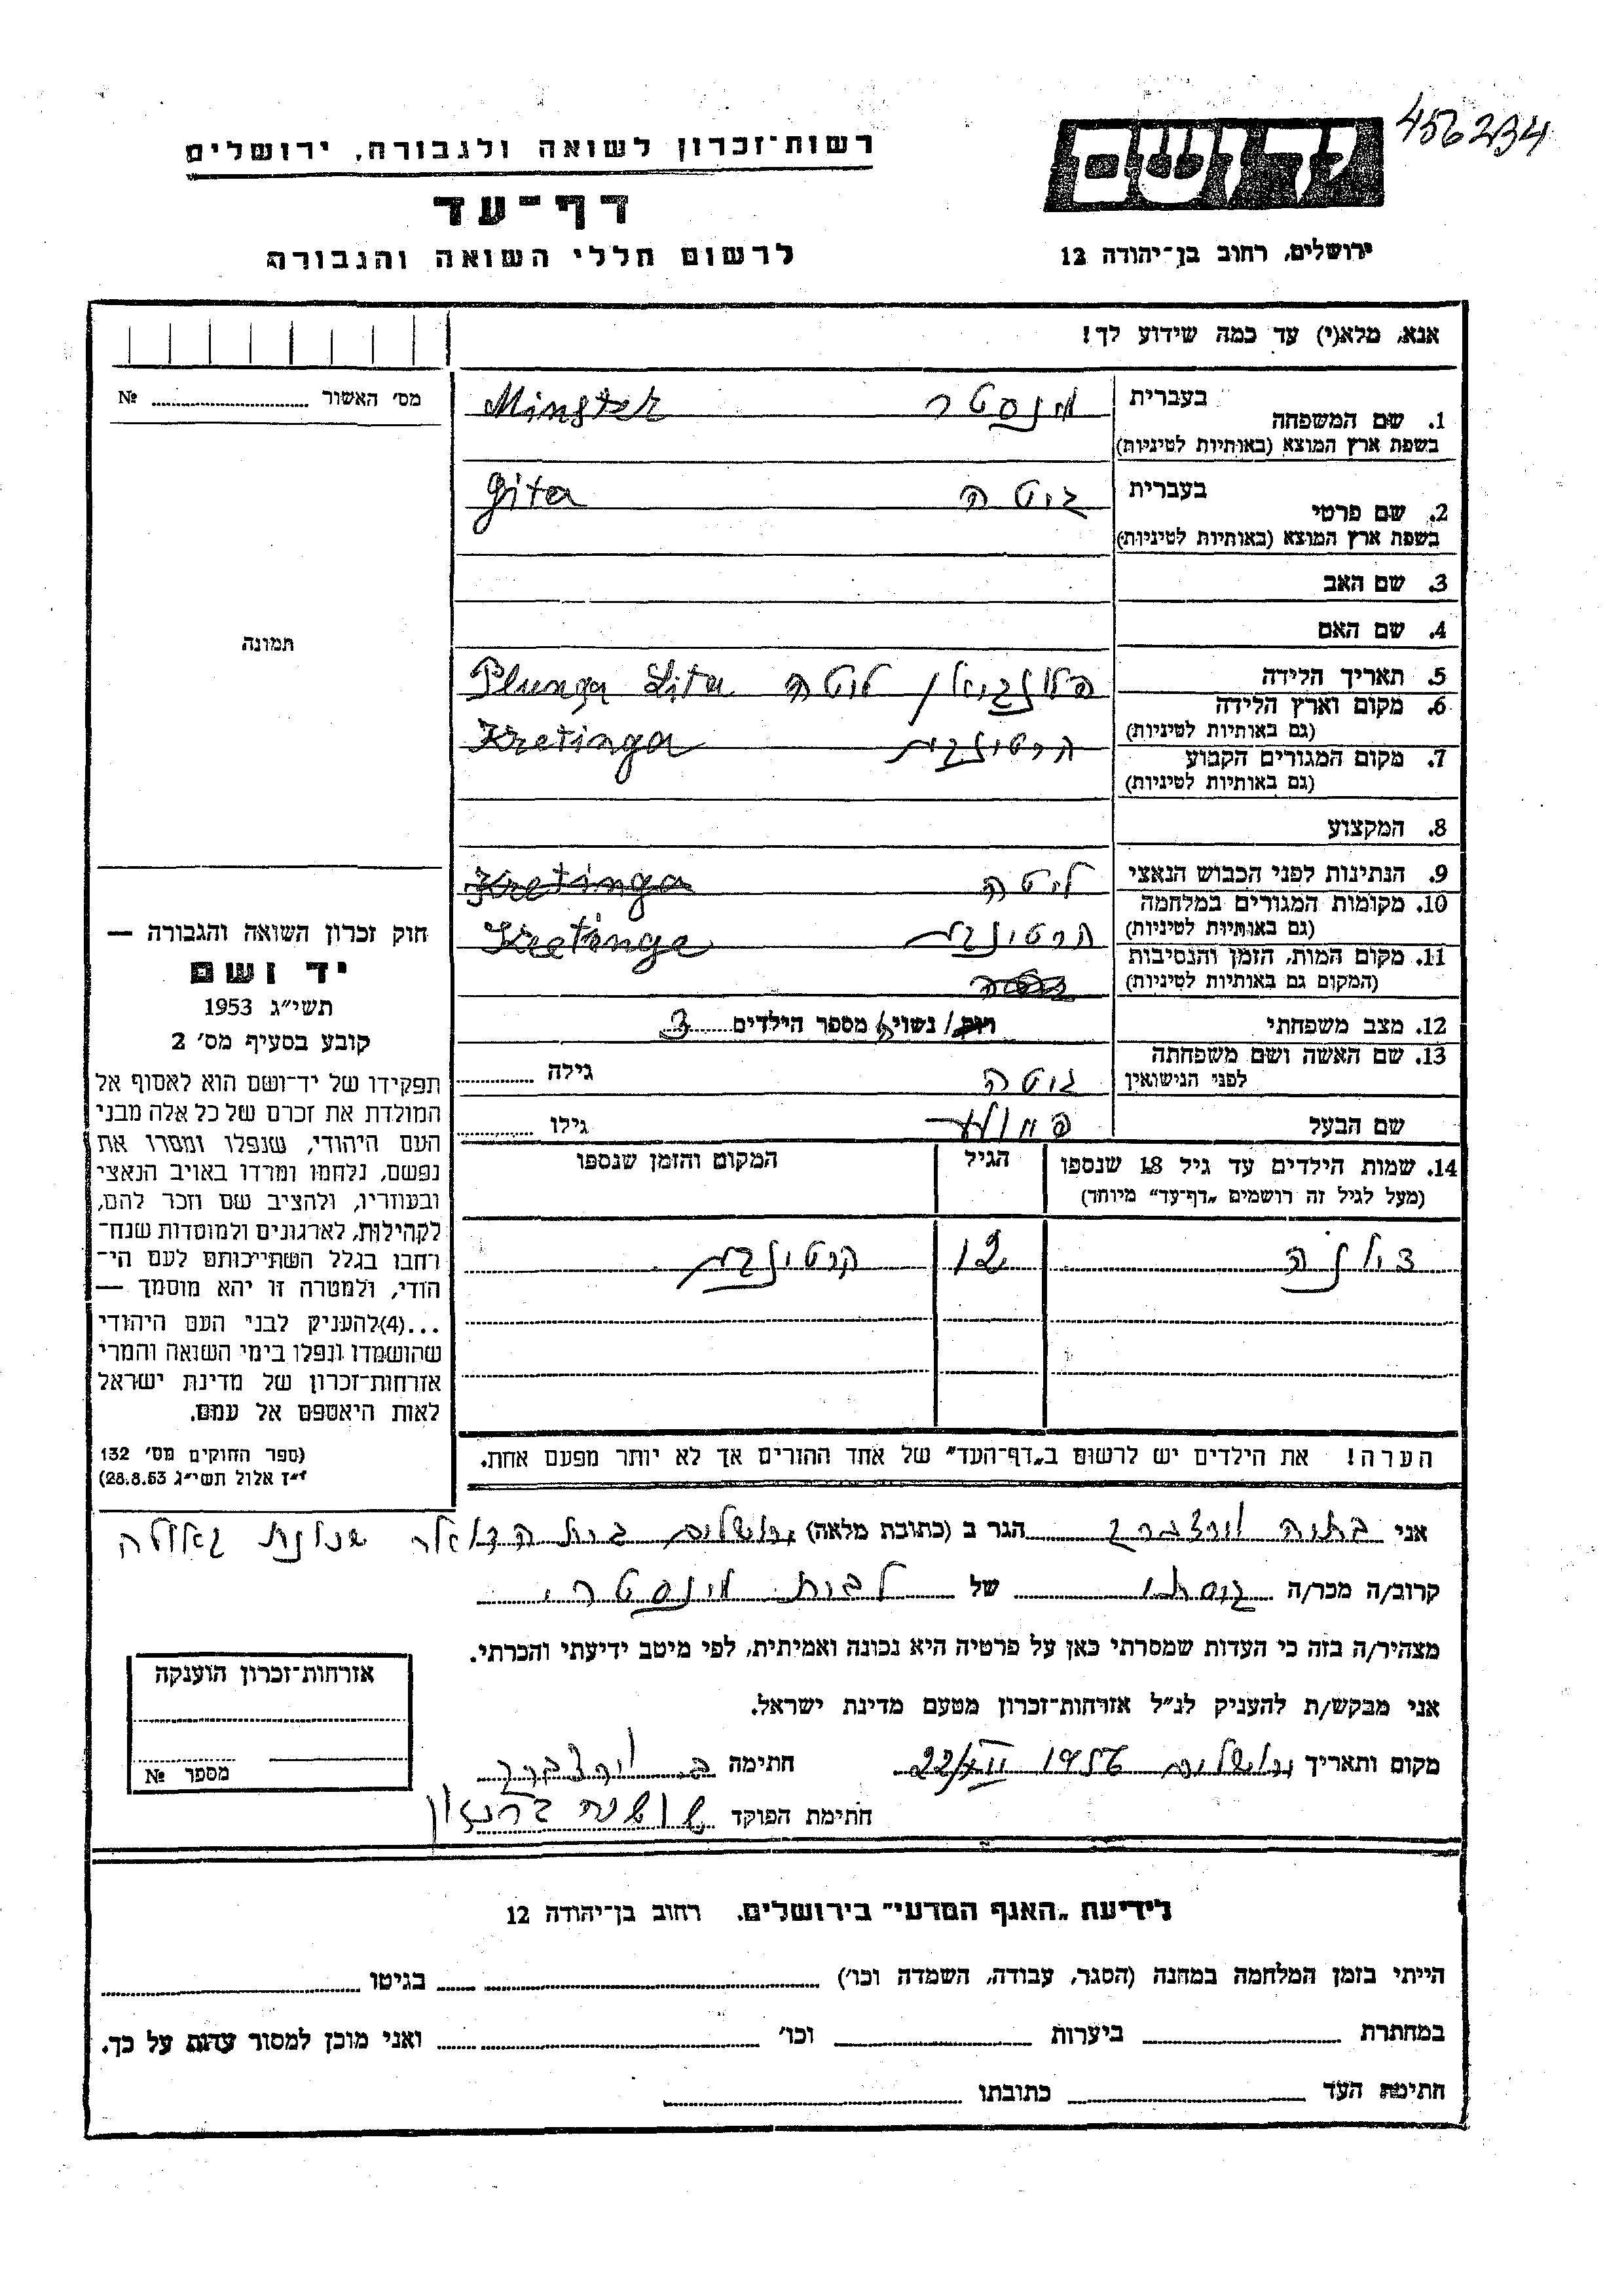 456234
רשות־זכרון לשואה ולגבורה, ירושלים
יד ושם
דף־עד
לרשום חללי השואה והגבורה
ירושלים, רחוב בן־יהודה 12
אנא, מלא(י) עד כמה שידוע לך!
מס' האשור № 
1. שם המשפחה בעברית מינסטר Minster
בשפת ארץ המוצא (באותיות לטיניות)
2. שם פרטי בעברית גיטה Gita
בשפת ארץ המוצא (באותיות לטיניות)
3. שם האב
4. שם האם
תמונה
5. תאריך הלידה
6. מקום וארץ הלידה ליטה Plunga Lita
(גם באותיות לטיניות)
7. מקום המגורים הקבוע קרטינגה Kretinga
(גם באותיות לטיניות)
8. המקצוע
9. הנתינות לפני הכבוש הנאצי ליטה Kretinga
10. מקומות המגורים במלחמה
(גם באותיות לטיניות) Kretinga
11. מקום המות, הזמן והנסיבות
(המקום גם באותיות לטיניות)
12. מצב משפחתי רוק/ נשוי/ה מספר הילדים 3
13. שם האשה ושם משפחתה
לפני הנישואין גיטה גילה
שם הבעל גילו
14. שמות הילדים עד גיל 18 שנספו הגיל המקום והזמן שנספו
(מעל לגיל זה רושמים „דף־עד" מיוחד)
12
הערה! את הילדים יש לרשום ב„דף־העד" של אחד ההורים אך לא יותר מפעם אחת.
חוק זכרון השואה והגבורה —
יד ושם
תשי"ג 1953
קובע בסעיף מס' 2
תפקידו של יד־ושם הוא לאסוף אל
המולדת את זכרם של כל אלה מבני
העם היהודי, שנפלו ומסרו את
נפשם, נלחמו ומרדו באויב הנאצי
ובעוזריו, ולהציב שם וזכר להם,
לקהילות, לארגונים ולמוסדות שנח־
רחבו בגלל השתייכותם לעם הי־
הודי, ולמטרה זו יהא מוסמך —
...(4)להעניק לבני העם היהודי
שהושמדו ונפלו בימי השואה והמרי
אזרחות־זכרון של מדינת ישראל
לאות היאספם אל עמם.
(ספר החוקים מס' 132
י"ז אלול תשי"ג 28.8.53)
אני בתיה הגר ב (כתובת מלאה) ירושלים בית הדואר שכונת גאולה
קרוב/ה מכר/ה גיסתי של לבית מינסטר
מצהיר/ה בזה כי העדות שמסרתי כאן על פרטיה היא נכונה ואמיתית, לפי מיטב ידיעתי והכרתי.
אני מבקש/ת להעניק לנ"ל אזרחות־זכרון מטעם מדינת ישראל.
מקום ותאריך ירושלים 22/XII 1956 חתימה ב.
חתימת הפוקד
אזרחות־זכרון הוענקה
מספר №
לידיעת „האגף המדעי" בירושלים, רחוב בן־יהודה 12
הייתי בזמן המלחמה במחנה (הסגר, עבודה, השמדה וכו') בגיטו
במחתרת ביערות וכו' ואני מוכן למסור עדות על כך.
חתימת העד כתובתו